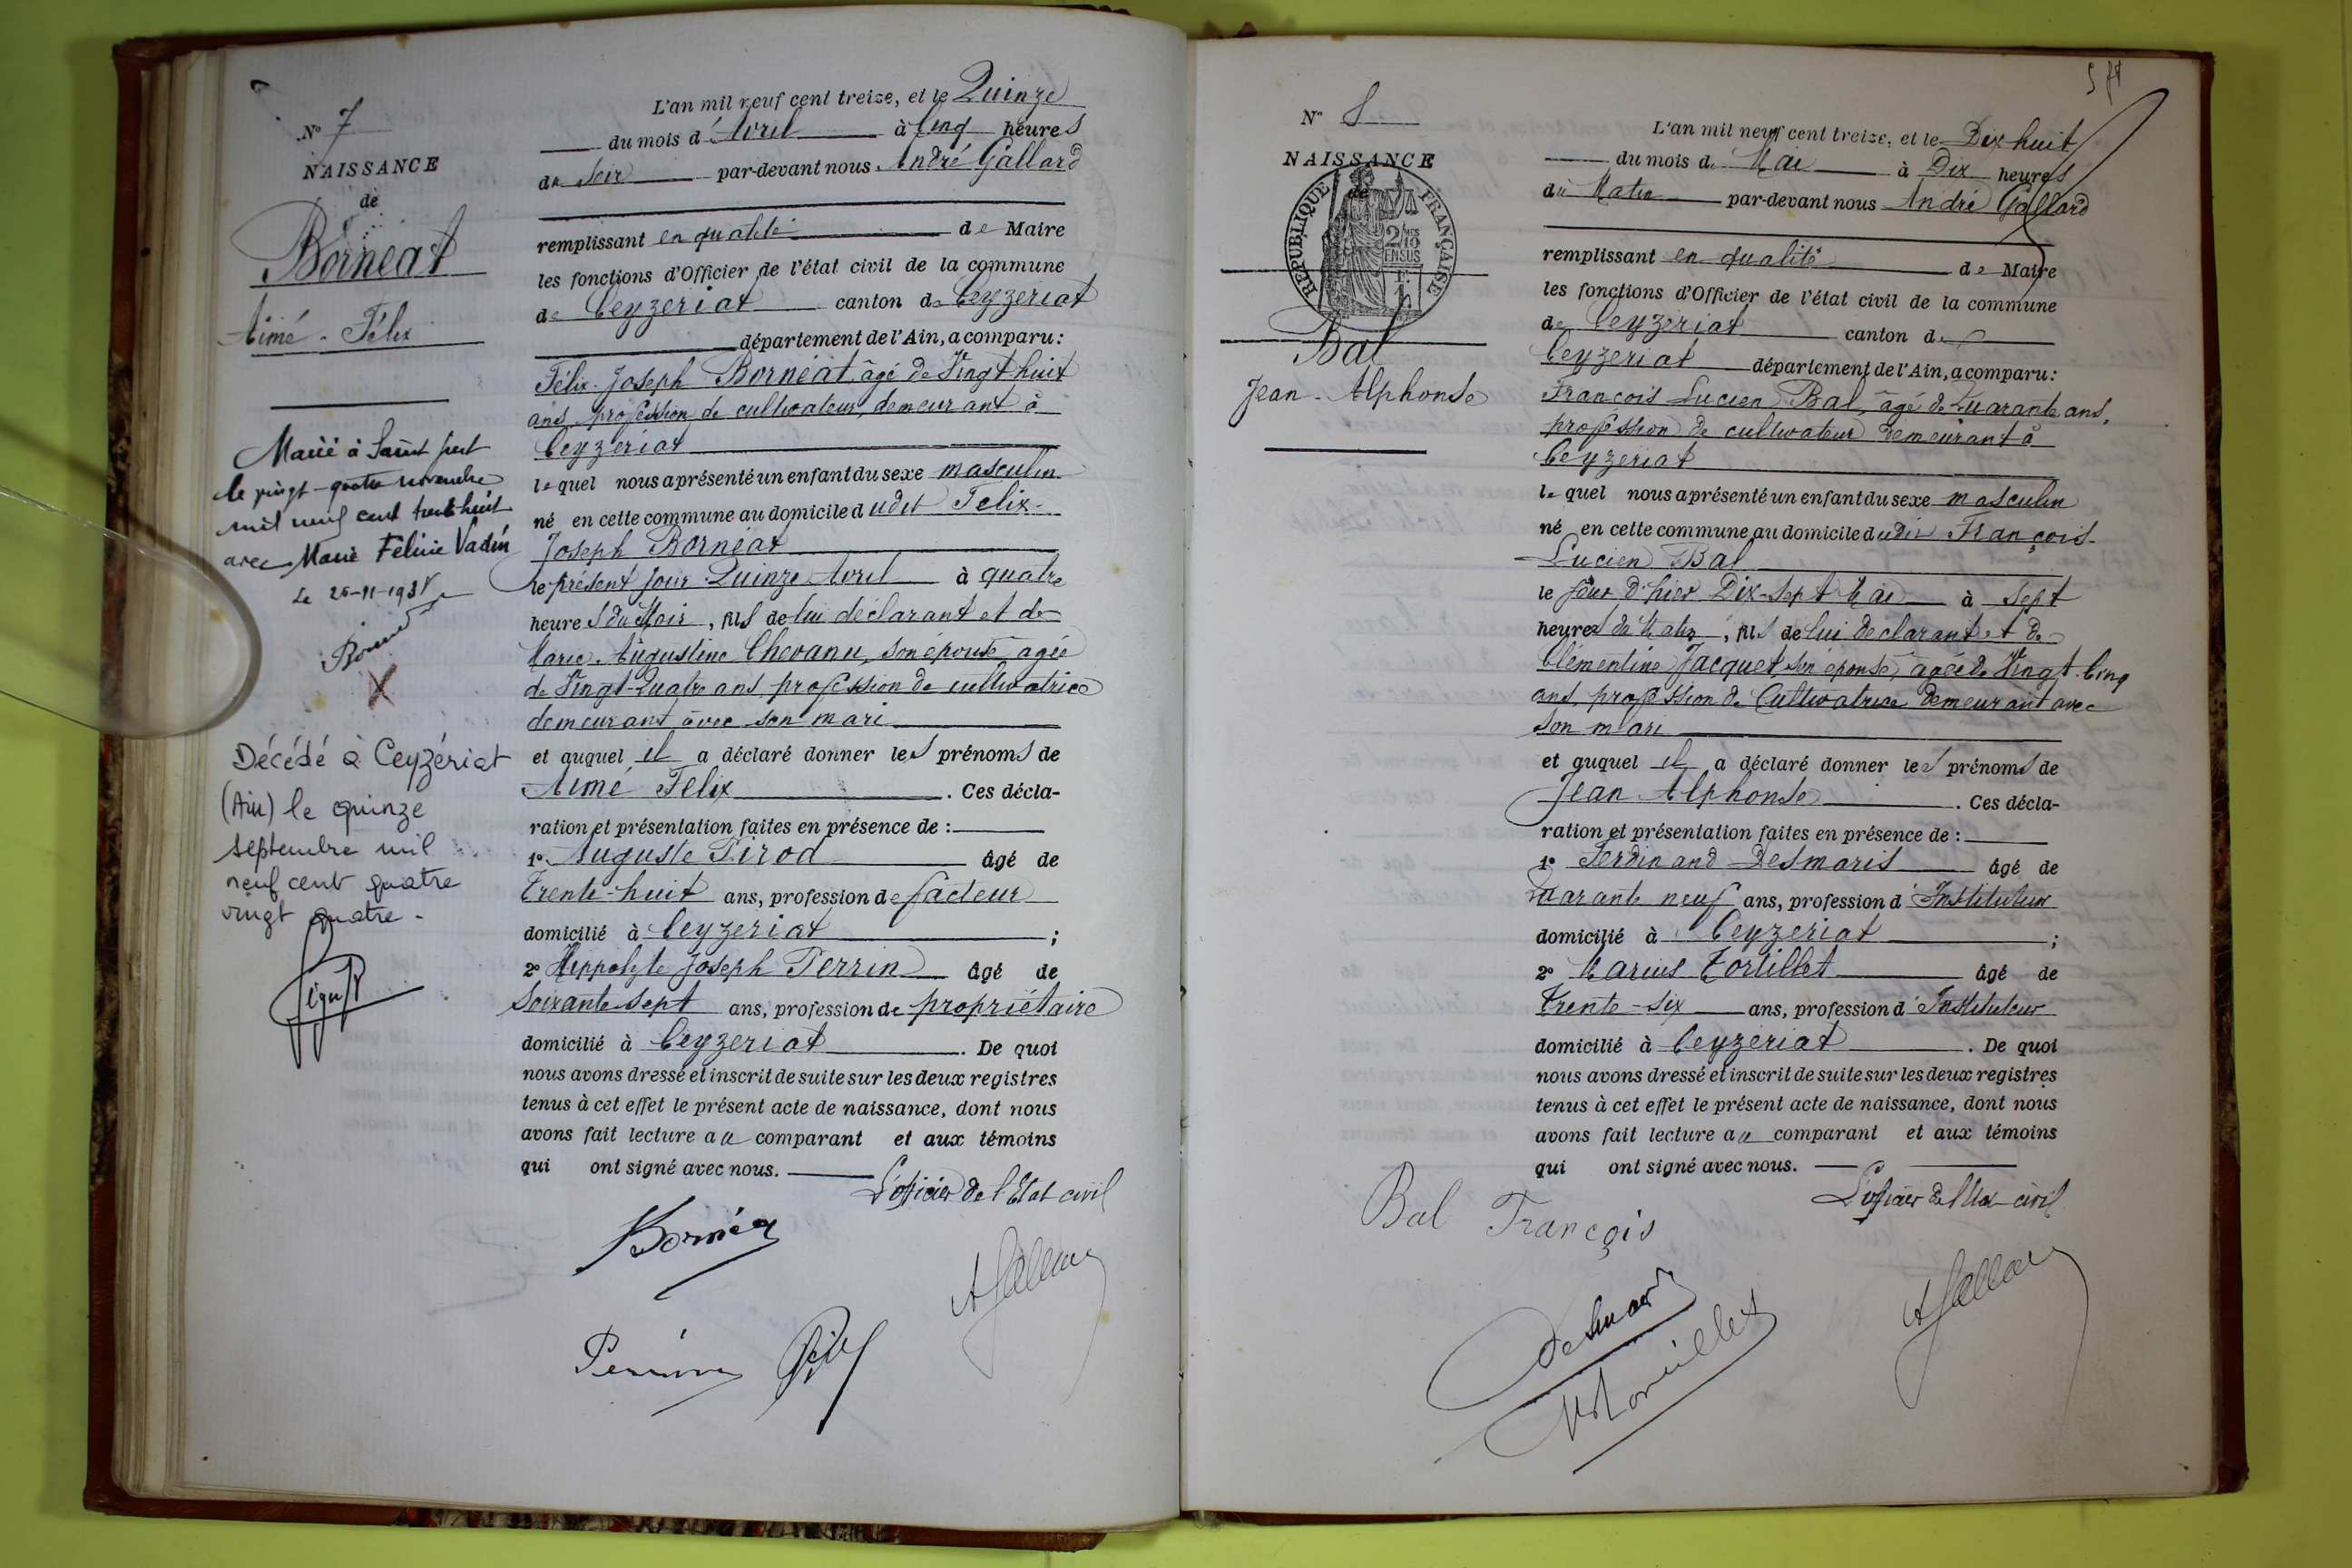 N° 7
NAISSANCE
de
Bornéat
Aimé - Félix
Marié à Saint Just
le vingt-quatre novembre
mil neuf cent trente huit
avec Marie Féline Vadin
Le 26-11-1938
Décédé à Ceyzériat
(Ain) le quinze
septembre mil
neuf cent quatre
vingt quatre -
L'an mil neuf cent treize, et le Quinze
du mois d'Avril à Cinq heures
du Soir par-devant nous André Gallard
remplissant en qualité de Maire
les fonctions d'Officier de l'état civil de la commune
de Ceyzeriat canton de Ceyzeriat
département de l'Ain, a comparu:
Félix-Joseph Bornéat, âgé de Vingt huit
ans, profession de cultivateur, demeurant à
Ceyzeriat
lequel nous a présenté un enfant du sexe masculin
né en cette commune au domicile dudit Felix-
Joseph Bornéat
le présent jour Quinze Avril à quatre
heures du Soir, fils de lui déclarant et de
Marie Augustine Chevanu, son épouse agée
de Vingt-Quatre ans, profession de cultivatrice
demeurant avec son mari
et auquel il a déclaré donner les prénoms de
Aimé Félix. Ces décla-
ration et présentation faites en présence de :
1° Auguste Pirod âgé de
Trente-huit ans, profession de facteur
domicilié à Ceyzeriat ;
2° Hippolyte Joseph Perrin âgé de
Soixante sept ans, profession de propriétaire
domicilié à Ceyzeriat. De quoi
nous avons dressé et inscrit de suite sur les deux registres
tenus à cet effet le présent acte de naissance, dont nous
avons fait lecture au comparant et aux témoins
qui ont signé avec nous.
L'officier de l'Etat civil
Bornéat
AGallard
Perrin
N° 8
NAISSANCE
de
REPUBLIQUE FRANÇAISE
2/10
EN SUS
Bal
Jean-Alphonse
L'an mil neuf cent treize, et le Dix huit
du mois de Mai à Dix heures
du Matin par-devant nous André Gallard
remplissant en qualité de Maire
les fonctions d'Officier de l'état civil de la commune
de Ceyzeriat canton de
Ceyzeriat département de l'Ain, a comparu:
François Lucien Bal, âgé de Quarante ans,
profession de cultivateur demeurant à
Ceyzeriat
lequel nous a présenté un enfant du sexe masculin
né en cette commune au domicile dudit François-
Lucien Bal
le jour d'hier Dix-sept Mai à sept
heures du Matin, fils de lui declarant et de
Clémentine Jacquet, son épouse, agée de Vingt-Cinq
ans, profession de Cultivatrice demeurant avec
son mari
et auquel il a déclaré donner les prénoms de
Jean Alphonse. Ces décla-
ration et présentation faites en présence de :
1° Ferdinand Desmaris âgé de
Quarante neuf ans, profession d'Instituteur
domicilié à Ceyzeriat ;
2° Marius Tortillet âgé de
Trente-six ans, profession d'Instituteur
domicilié à Ceyzeriat. De quoi
nous avons dressé et inscrit de suite sur les deux registres
tenus à cet effet le présent acte de naissance, dont nous
avons fait lecture au comparant et aux témoins
qui ont signé avec nous.
L'officier de l'Etat civil
Bal François
AGallard